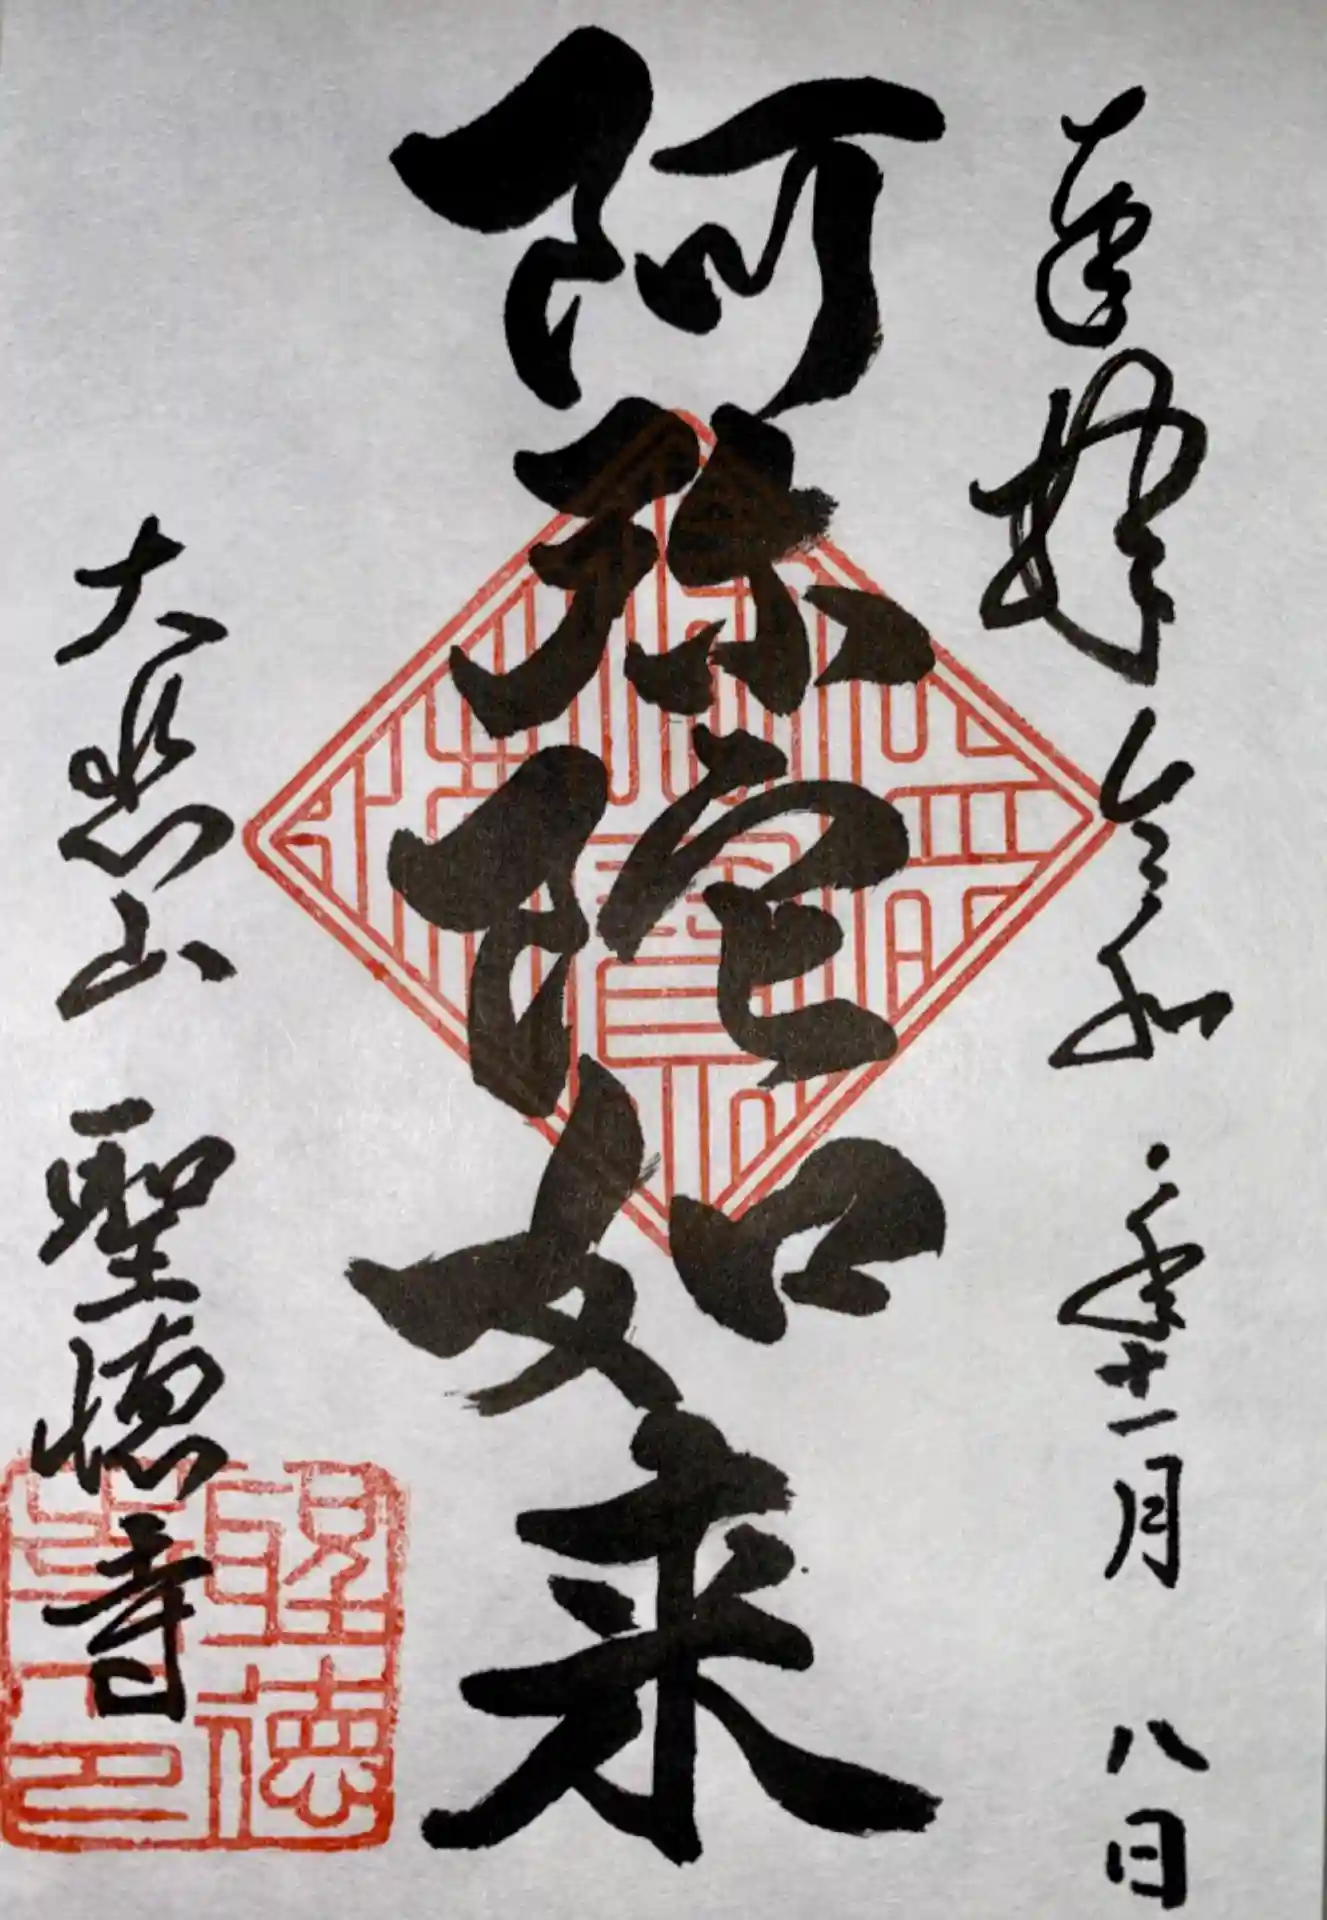 奉拝 令和 二年十一月 八日
阿弥陀如来
大悲山 聖徳寺
聖徳
寺印